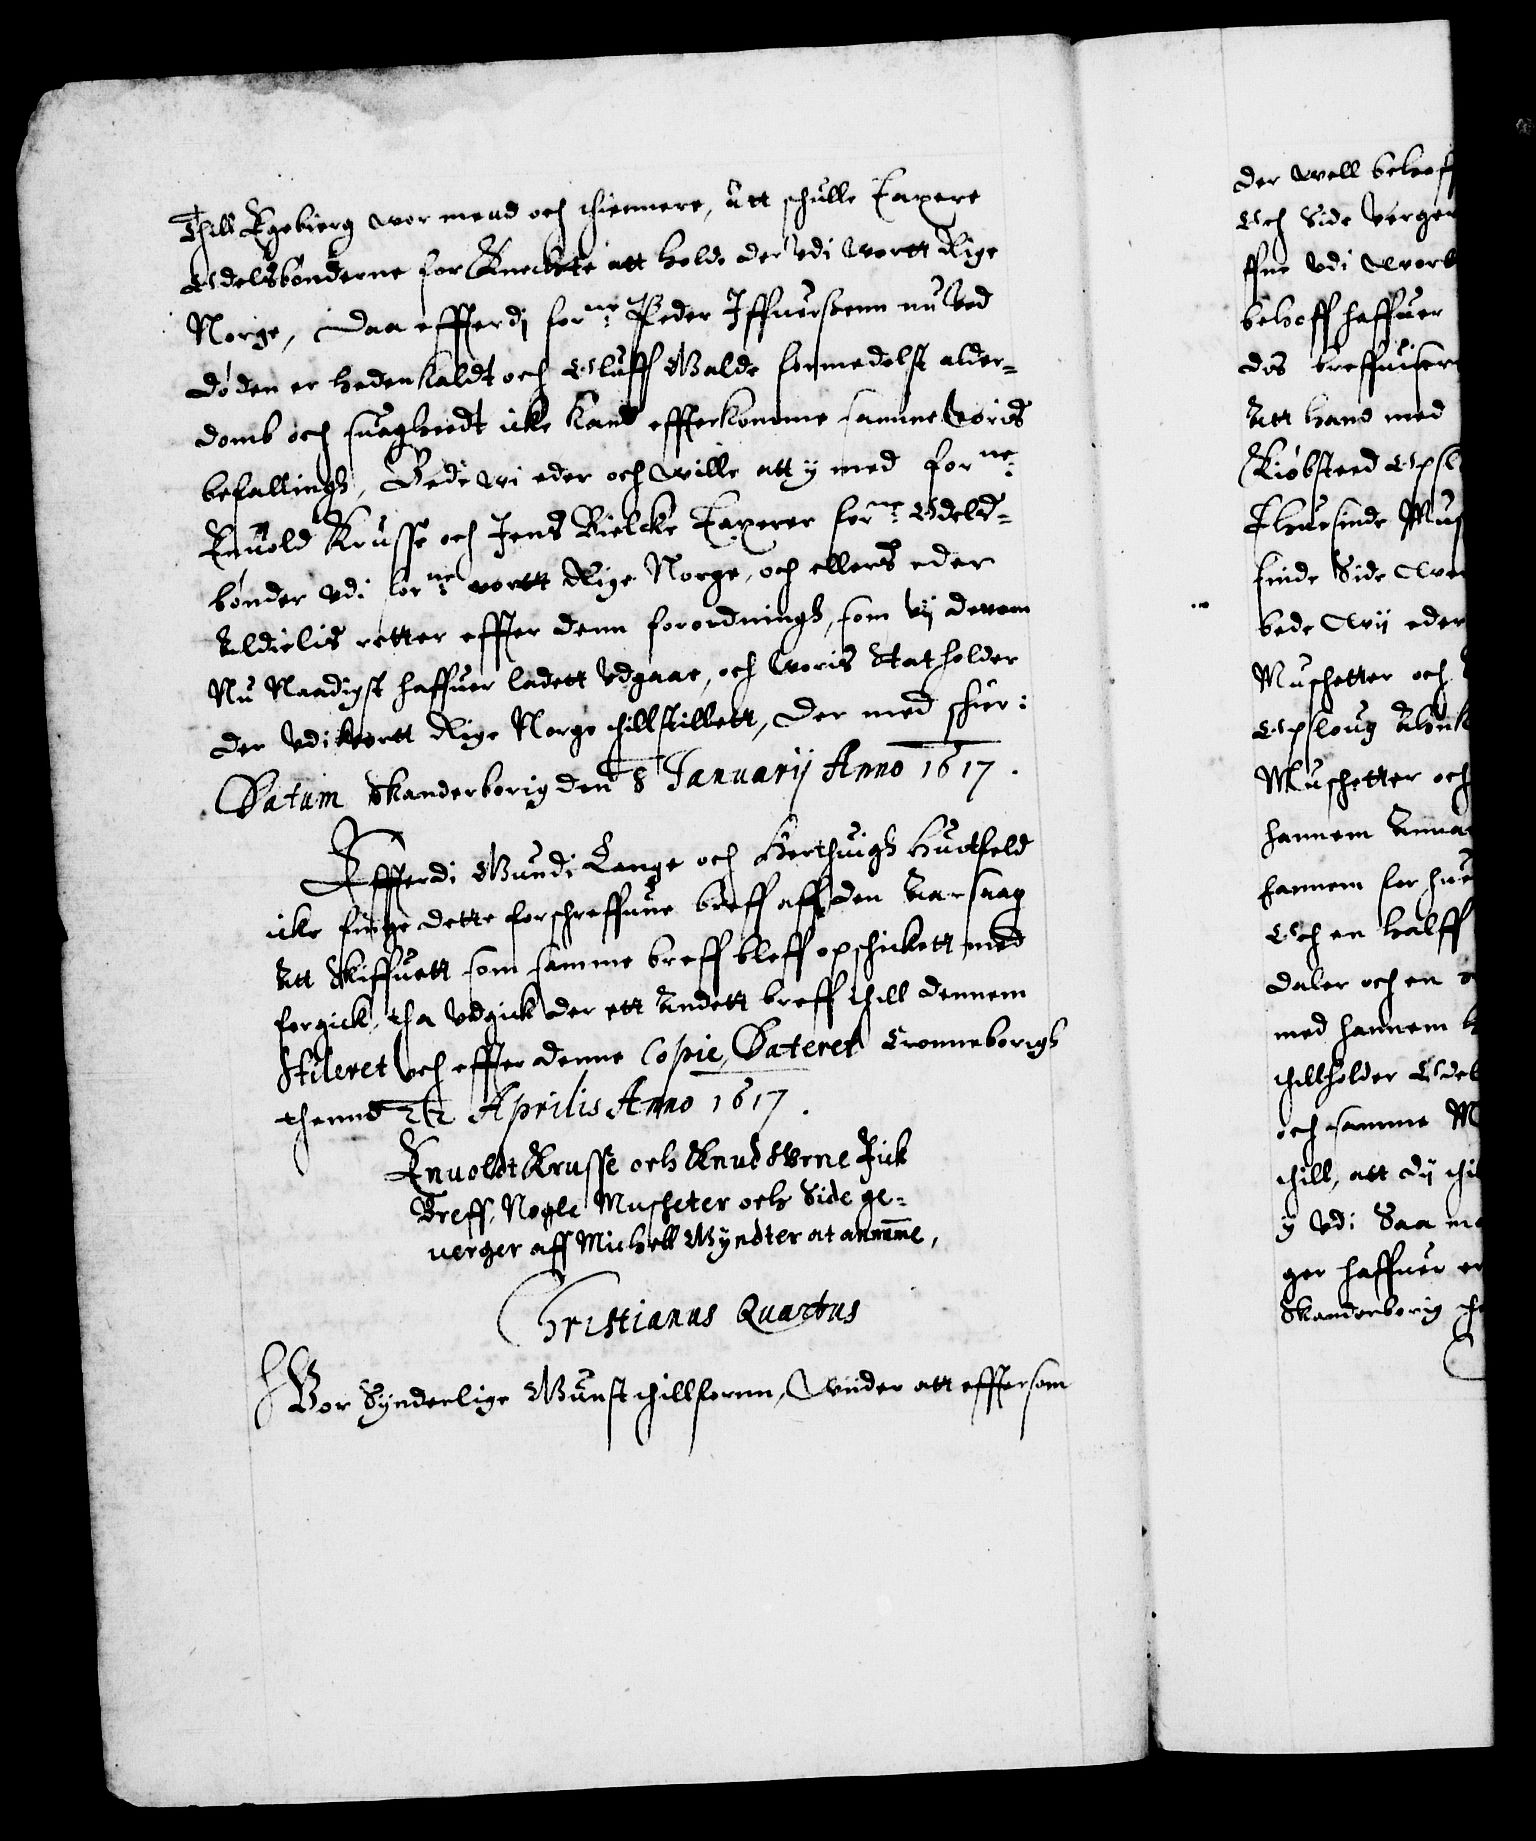 Thill Egebierg wor mend och thiennere, Att schulle Taxere
Odelsbønderne for Knecktte att holde der Udi wortt Rige
Norge, Daa effterdj forne: Peder Iffuersenn nu Ved
døden er hedenkaldt och Oluff Galde formedelst alder-
domb och suagheedt icke Kand effterkomme samme Woris
befallingh, Bede wi eder och wille att y med forne:
Enuold Krusse och Jens Bielcke Taxerer forne: Odels-
bønder Udi forne: wortt Rige Norge, och ellers eder
Aldielis retter effter denn forordningh, som vij derom
Nu Naadigst haffuer ladett Udgaae, och Woris Statholder
der Udi wortt Rige Norge thillstillett, Der med sker:
Datum Skanderborig den 8 Januarij Anno 1617.
Effterdi Gundi Lange och Herthuigh Huidtfeld
icke finge dette forschreffune breff aff den Aarsaag
Att Skiffuett som samme breff bleff opschickett med
forgick, tha Udgick der ett Andett breff thill dennem
Stileret och effter denne Copie, Dateret Cronneborigh
thennd 22 Aprilis Anno 1617.
Enuoldt Krusse och Knud Urne Fick
Breff, Nogle Muscheter och Side ge-
uerger aff Michell Wyndter at anamme,
Christianus Quartus
Vor Synderlige Gunst thillfornn, Wiider att efftersom
der well behoff
Och Side Verger
ffue Udi Wort
behoff haffuer
dis breffuiser
Att hand med
Kiøbsteed Opsl
Thuesinde Mus
sinde Side Wer
bede Wij eder
Muschetter och
Opsloug
Muschetter och
hannem Anna
hannem for hue
Och en halff
daler och en
med hannem
thillholder Odel
och samme M
thill, att dij thi
y Udi Saa ma
ger haffuer er
Skanderborig th